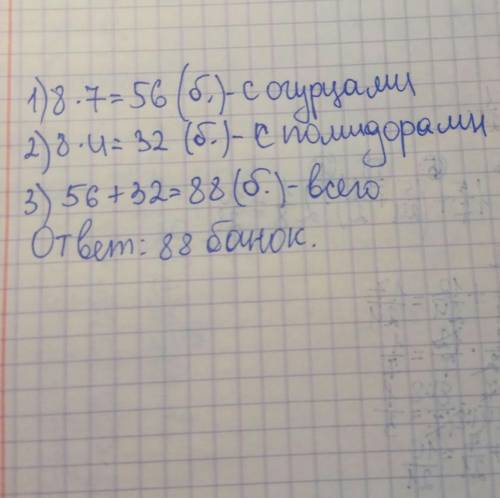 1) 8 · 7 = 56 (б.) - с огурцами
2) 8 · 4 = 32 (б.) - с помидорами
3) 56 + 32 = 88 (б.) - всего
Ответ: 88 банок.